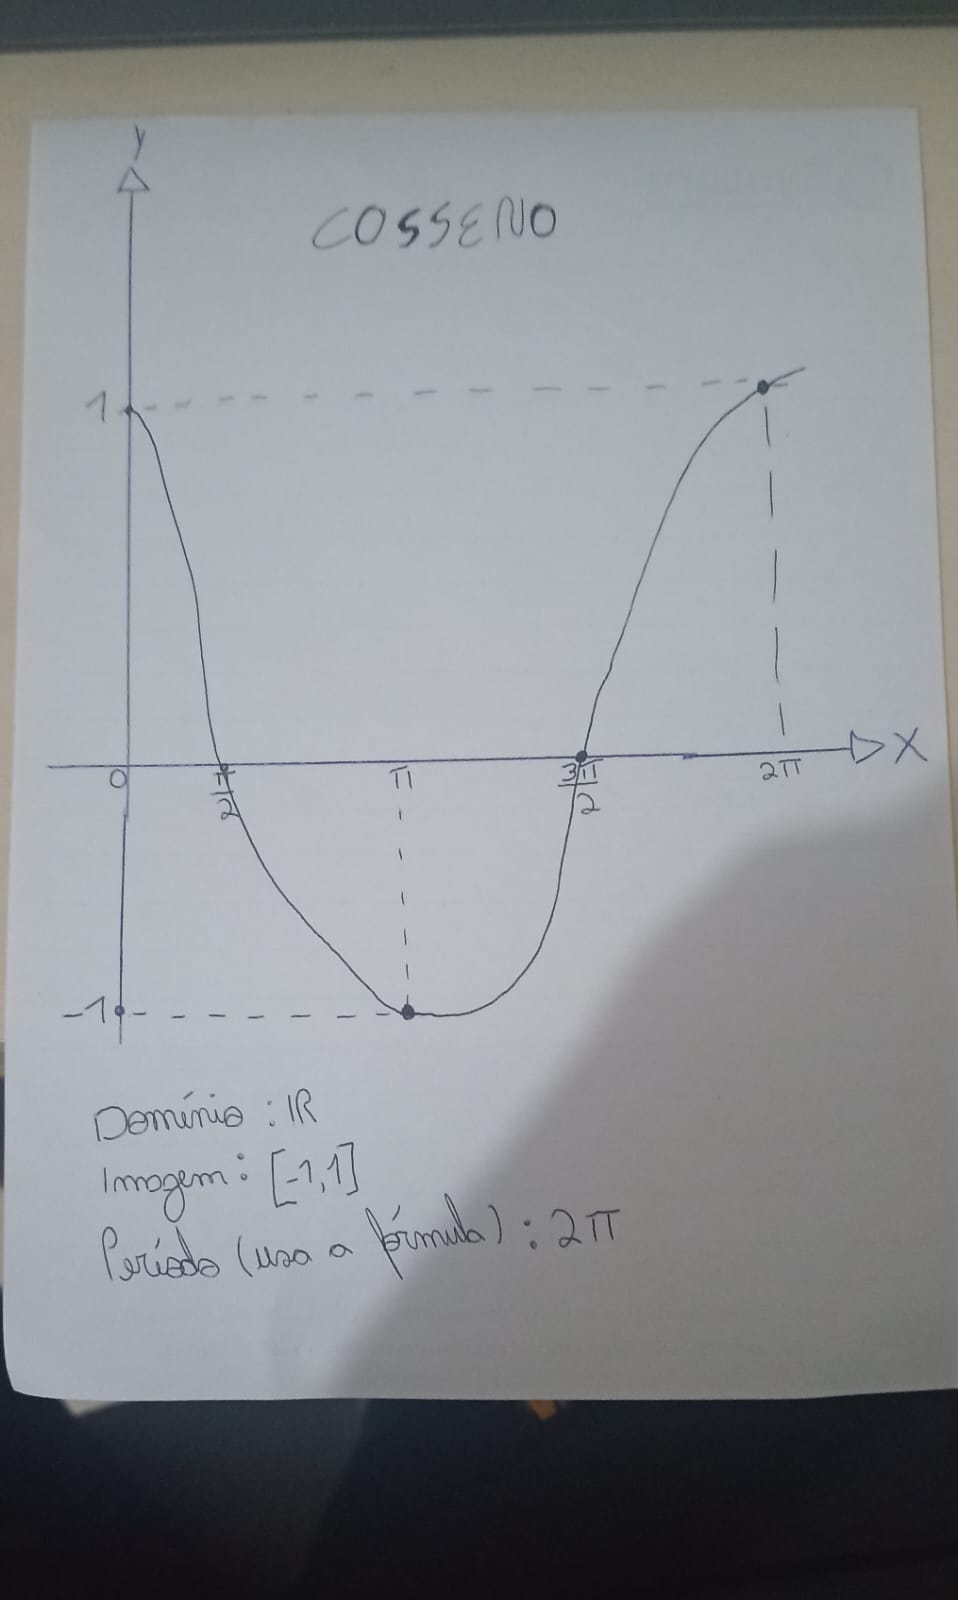 y
COSSENO
1
0 π/2 π 3π/2 2π X
-1
Domínio: IR
Imagem: [-1,1]
Período (usa a fórmula): 2π